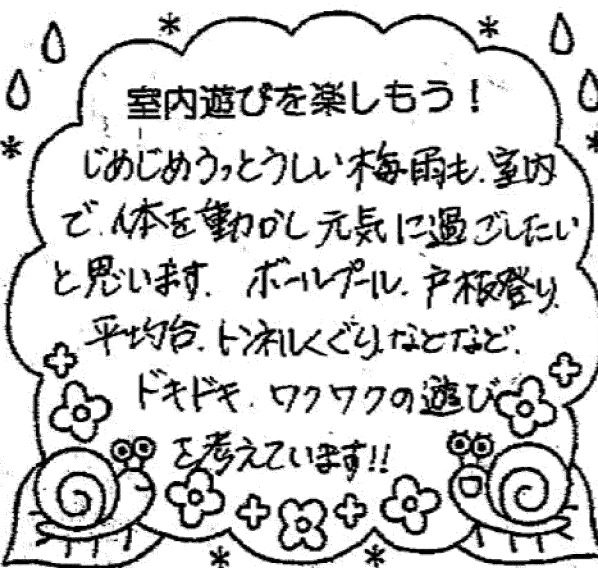 室内遊びを楽しもう！
じめじめうっとうしい梅雨も、室内
で、体を動かし元気に過ごしたい
と思います。ボールプール、戸板登り、
平均台、トンネルくぐり、などなど、
ドキドキ、ワクワクの遊び
を考えています!!